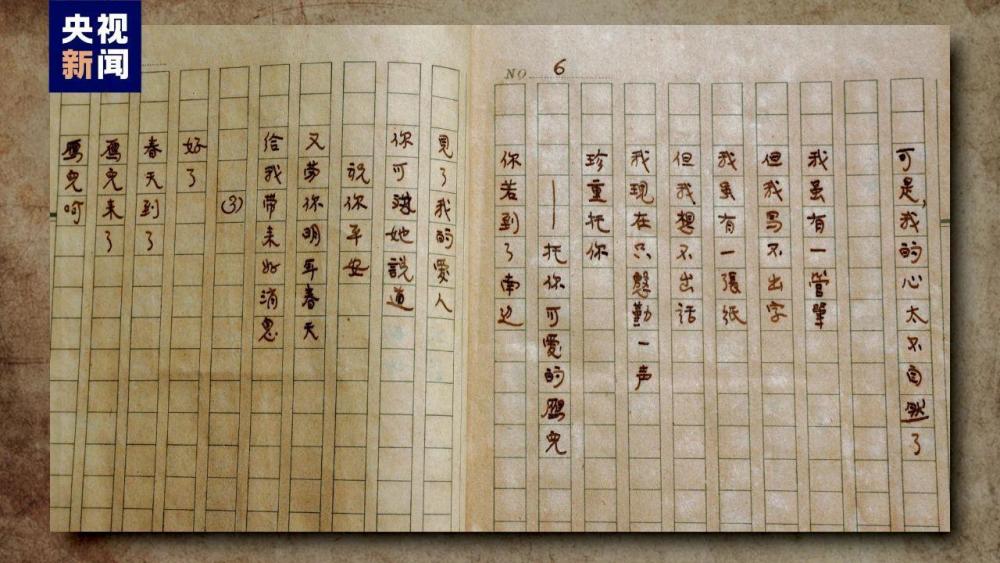 央视
新闻
NO 6
可是,我的心太不自然了
我虽有一管筆
但我写不出字
我虽有一張紙
但我想不出話
我現在只慇勤一声
珍重托你
——托你可愛的鴈兒
你若到了南边
見了我的愛人
你可對她說道
說你平安
又劳你明年春天
给我带来好消息
(3)
好了
春天到了
鴈兒来了
鴈兒呵